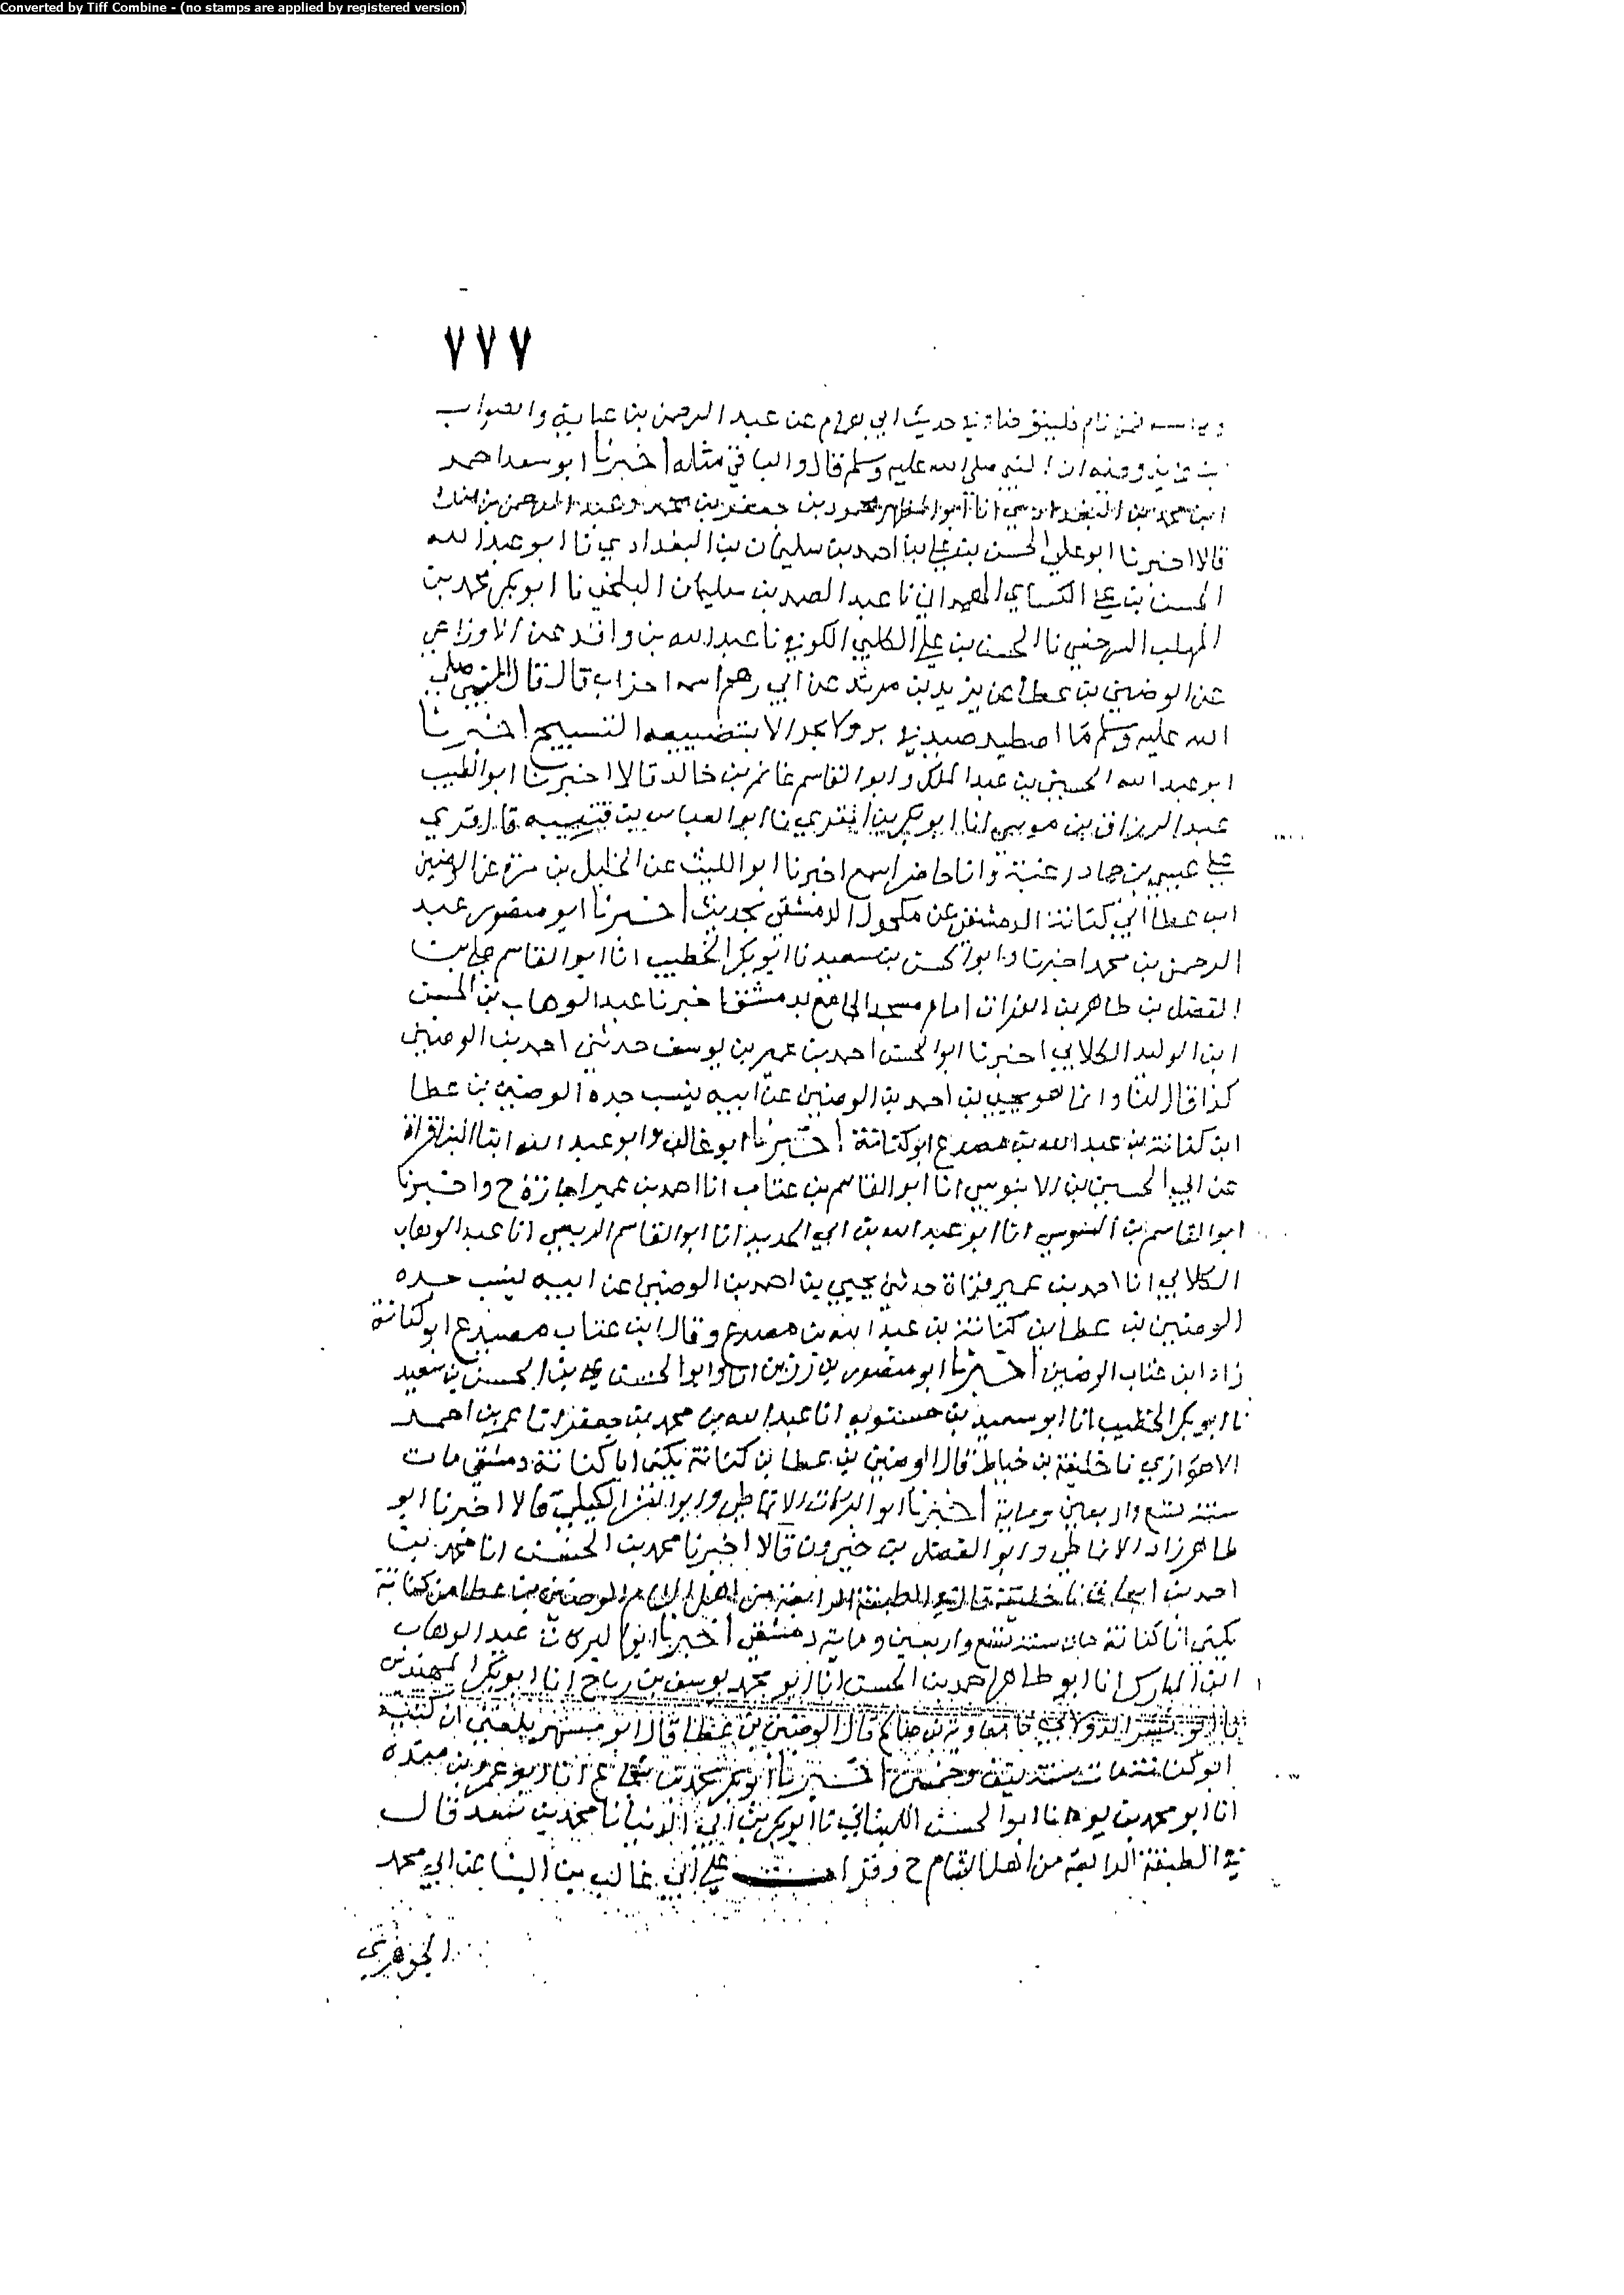 Converted by Tiff Combine - (no stamps are applied by registered version)
٧٧٧
فمن نام فليتوضا في حديث ابي عن عبد الرحمن بن عايذ والصواب
ان النبي صلى الله عليه وسلم قال والباقي مثله اخبرنا ابو سعد احمد
ابن محمد بن البغدادي انا ابو المظهر محمود بن جعفر بن محمد وعبد الرحمن بن
قالا اخبرنا ابو علي الحسن بن علي بن احمد بن سليمان بن البغدادي نا ابو عبد الله
الحسن بن علي الكساي الهمداني نا عبد الصمد بن سليمان البلخي نا ابو بكر محمد بن
المهلب السرخسي نا الحسن بن علي الكلبي الكوفي نا عبد الله بن واقد عن الاوزاعي
عن الوضين بن عطا عن يزيد بن مرثد عن ابي رهم اسمه احزاب قال قال النبي صلى
الله عليه وسلم ما اصطيد صيد في بر ولا بحر الا بتضييعه التسبيح اخبرنا
ابو عبد الله الحسين بن عبد الملك وابو القاسم غانم بن خالد قالا اخبرنا ابو الطيب
عبد الرزاق بن موسى انا ابو بكر بن المقري نا ابو العباس بن قتيبه قال قري
على عيسى بن حماد زغبة وانا حاضر اسمع اخبرنا ابو الليث عن الخليل بن مرة عن الوضين
ابن عطا ابي كنانة الدمشقي عن مكحول الدمشقي بحديث اخبرنا ابو منصور عبد
الرحمن بن محمد اخبرنا وابو الحسن بن سعيد نا ابو بكر الخطيب انا ابو القاسم علي بن
الفضل بن طاهر بن الفرات امام مسجد الجامع بدمشق اخبرنا عبد الوهاب بن الحسن
ابن الوليد الكلابي اخبرنا ابو الحسن احمد بن عمير بن يوسف حدثني احمد بن الوضين
كذا قال لنا وانما هو يحيى بن احمد بن الوضين عن ابيه ينسب جده الوضين بن عطا
ابن كنانة بن عبد الله بن مصدع ابو كنانة اخبرنا ابو غالب وابو عبد الله ابنا البنا قراة
عن ابي الحسين بن الابنوسي انا ابو القاسم بن عتاب انا احمد بن عمير اجازة ح واخبرنا
ابو القاسم بن السوسي انا ابو عبد الله بن ابي الحديد انا ابو القاسم الربعي انا عبد الوهاب
الكلابي انا احمد بن عمير قراة حدثني يحيى بن احمد بن الوضين عن ابيه ينسب جده
الوضين بن عطا بن كنانة بن عبد الله بن مصدع وقال ابن عتاب مصدع ابو كنانة
زاد ابن عتاب الوضين اخبرنا ابو منصور بن زريق انا وابو الحسن علي بن الحسن بن سعيد
نا ابو بكر الخطيب انا ابو سعيد بن حسنويه انا عبد الله بن محمد بن جعفر نا عمر بن احمد
الاهوازي نا خليفة بن خياط قال الوضين بن عطا بن كنانة يكنى ابا كنانة دمشقي مات
سنة تسع واربعين وماية اخبرنا ابو البركات الانماطي وابو العز الكيلي قالا اخبرنا ابو
طاهر زاد الانماطي وابو الفضل بن خيرون قالا اخبرنا محمد بن الحسن انا محمد بن
احمد بن اسحاق نا خليفة قال في الطبقة الرابعة من اهل الشام الوضين بن عطا من كنانة
يكنى ابا كنانة مات سنة تسع واربعين وماية دمشقي اخبرنا ابو البركات عبد الوهاب
ابن المبارك انا ابو طاهر احمد بن الحسن انا ابو محمد يوسف بن رباح انا ابو بكر المهندس
نا ابو بشر الدولابي نا معاوية بن صالح قال الوضين بن عطا قال ابو مسهر بلغني ان كنيته
ابو كنانة مات سنة نيف وخمسين اخبرنا ابو بكر محمد بن شجاع انا ابو عمرو بن منده
انا ابو محمد بن يوه نا ابو الحسن اللبناني نا ابو بكر بن ابي الدنيا نا محمد بن سعد قال
في الطبقة الرابعة من اهل الشام ح وقرات على ابي غالب بن البنا عن ابي محمد
الجوهري